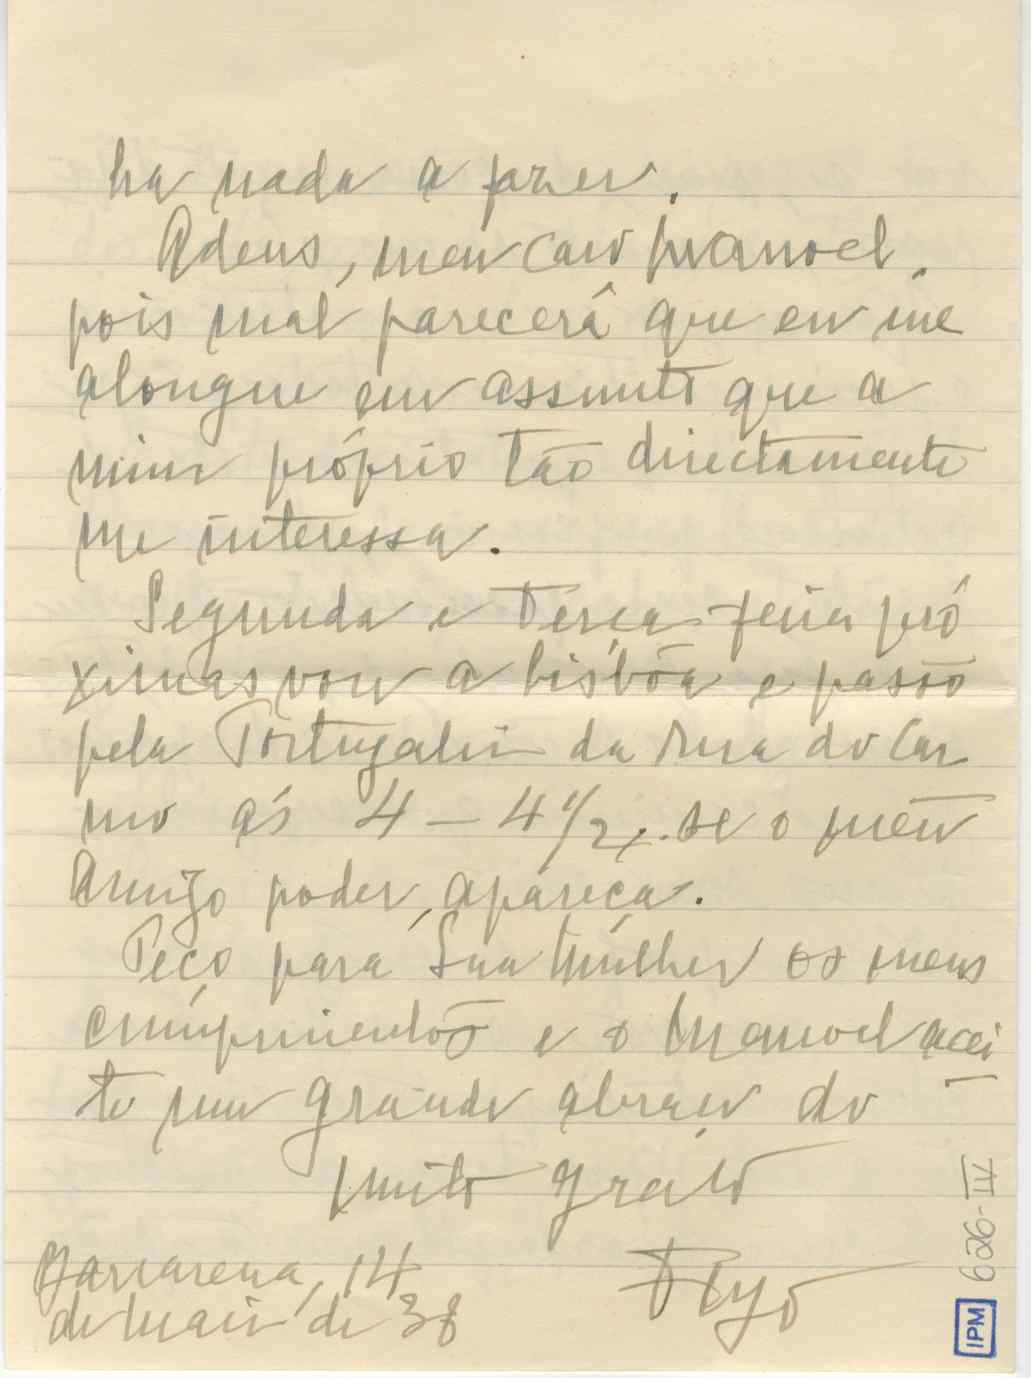 ha nada a fazer.
Adeus, meu caro Manoel,
pois mal parecerá que eu me
alongue em assunto que a
mim próprio tão directamente
me interessa.
Segunda e Terça-feira pró
ximas vou a Lisbôa e passo
pela Portugalia da Rua do Car
mo ás 4 — 4 1/2. Se o meu
Amigo poder, apareça.
Peço para Sua Mulher os meus
cumprimentos e o Manoel acei
te um grande abraço do
muito grato
Barcarena, 14
de Maio de 38
IPM 626-IV